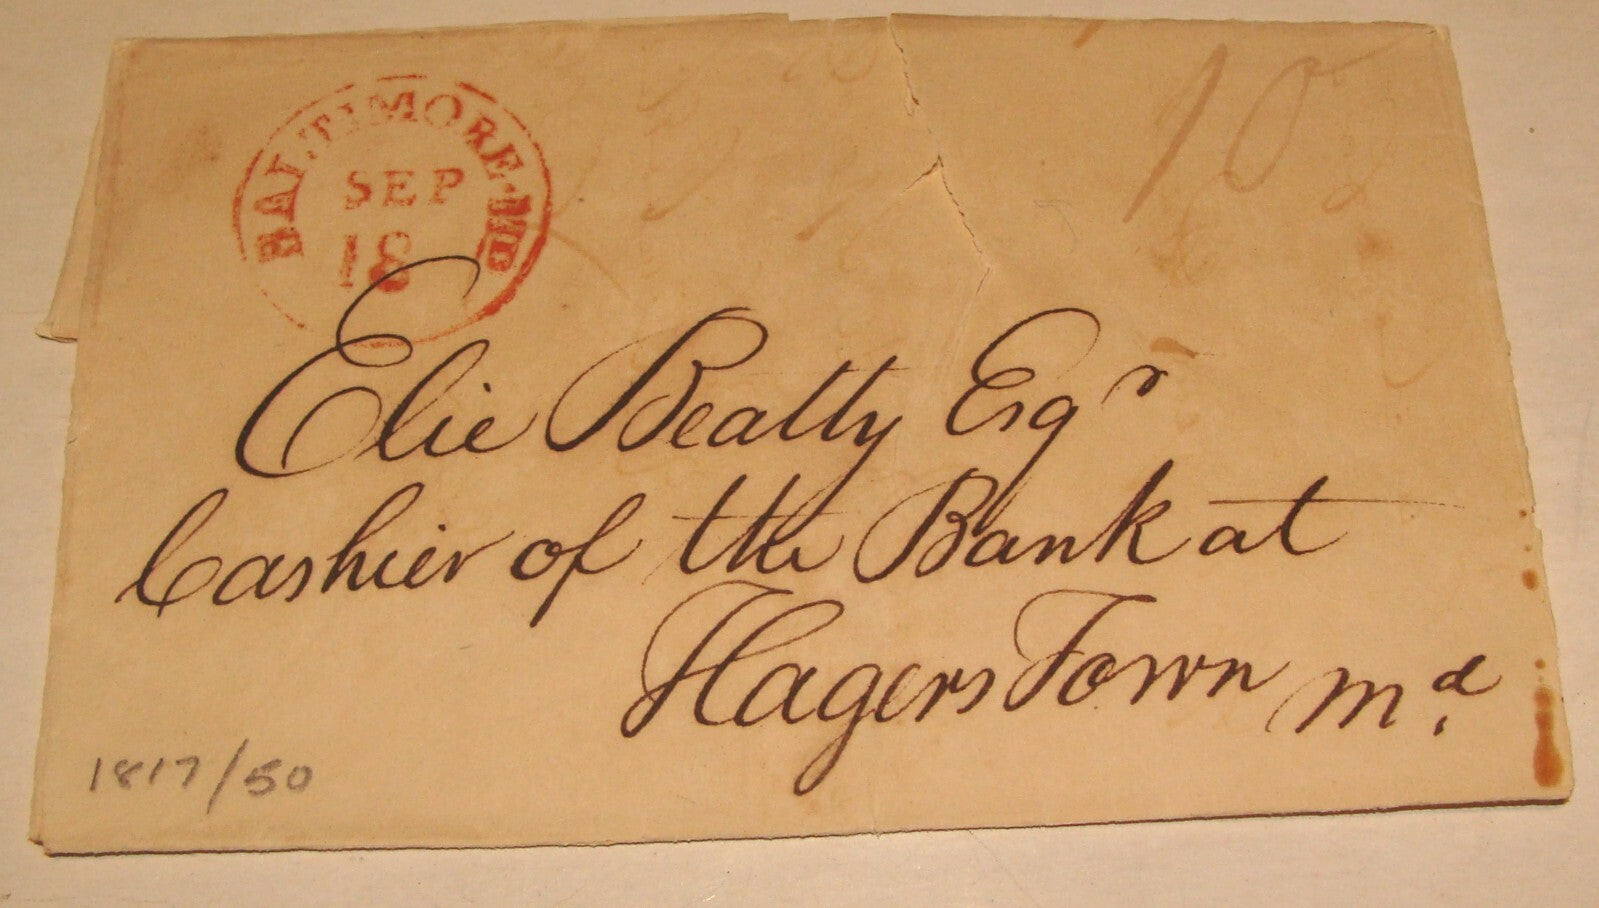 BALTIMORE MD
SEP
18
10
Elie Beatty Esqr
Cashier of the Bank at
HagersTown Md.
1817/50